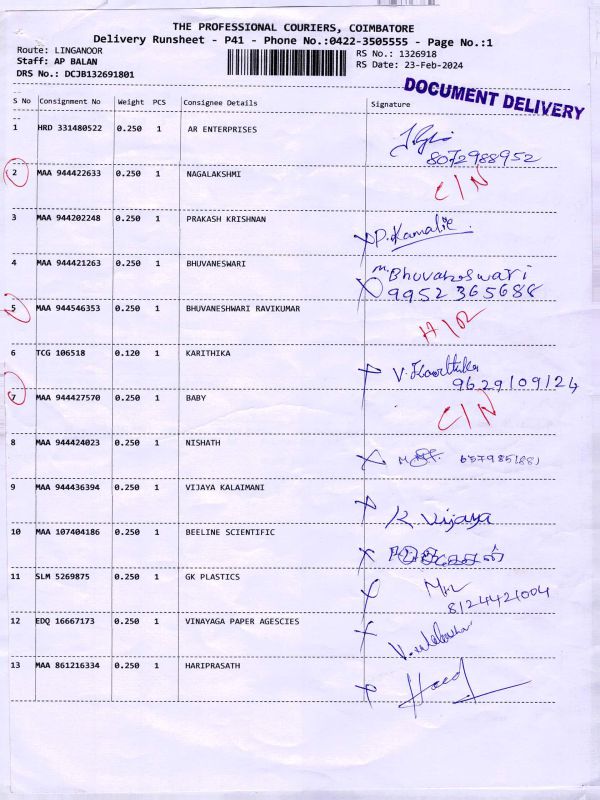 THE PROFESSIONAL COURIERS, COIMBATORE
Delivery Runsheet - P41 - Phone No.:0422-3505555 - Page No.:1
Route: LINGANOOR
RS No.: 1326918
Staff: AP BALAN
RS Date: 23-Feb-2024
DRS No.: DCJB132691801
DOCUMENT DELIVERY
S No Consignment No Weight PCS Consignee Details Signature
1 HRD 331480522 0.250 1 AR ENTERPRISES
8072988952
2 MAA 944422633 0.250 1 NAGALAKSHMI C/N
3 MAA 944202248 0.250 1 PRAKASH KRISHNAN
P. Kamalie.
4 MAA 944421263 0.250 1 BHUVANESWARI M. Bhuvaneswari
9952365688
5 MAA 944546353 0.250 1 BHUVANESHWARI RAVIKUMAR
6 TCG 106518 0.120 1 KARITHIKA
9629109124
7 MAA 944427570 0.250 1 BABY C/N
8 MAA 944424023 0.250 1 NISHATH
9 MAA 944436394 0.250 1 VIJAYA KALAIMANI
K Vijaya
10 MAA 107404186 0.250 1 BEELINE SCIENTIFIC
11 SLM 5269875 0.250 1 GK PLASTICS
8124421004
12 EDQ 16667173 0.250 1 VINAYAGA PAPER AGESCIES
13 MAA 861216334 0.250 1 HARIPRASATH